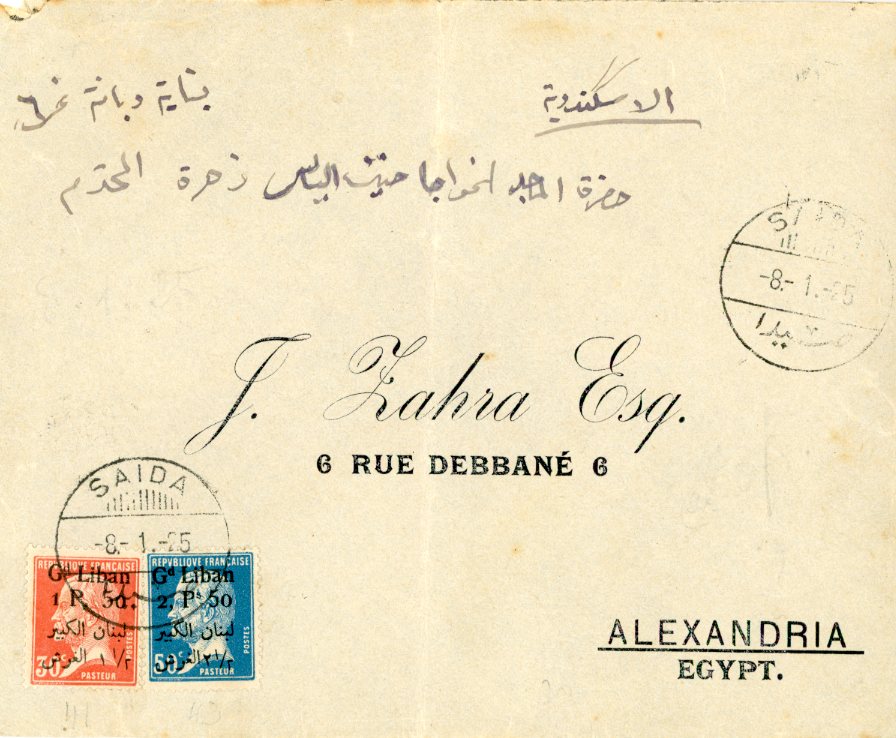 الاسكندرية
بناية دبانة نمرة ٦
حضرة الماجد الخواجا حنين الياس زهرة المحترم
SAIDA
-8.- 1.-25
صيدا
J. Zahra Esq.
6 RUE DEBBANÉ 6
SAIDA
-8.- 1.-25
REPUBLIQUE FRANÇAISE
Gd Liban
1 P. 50.
لبنان الكبير
١ ١/٢ الغرش
30c
POSTES
PASTEUR
REPUBLIQUE FRANÇAISE
Gd Liban
2, Ps 50
لبنان الكبير
٢ ١/٢ الغرش
50c
POSTES
PASTEUR
ALEXANDRIA
EGYPT.